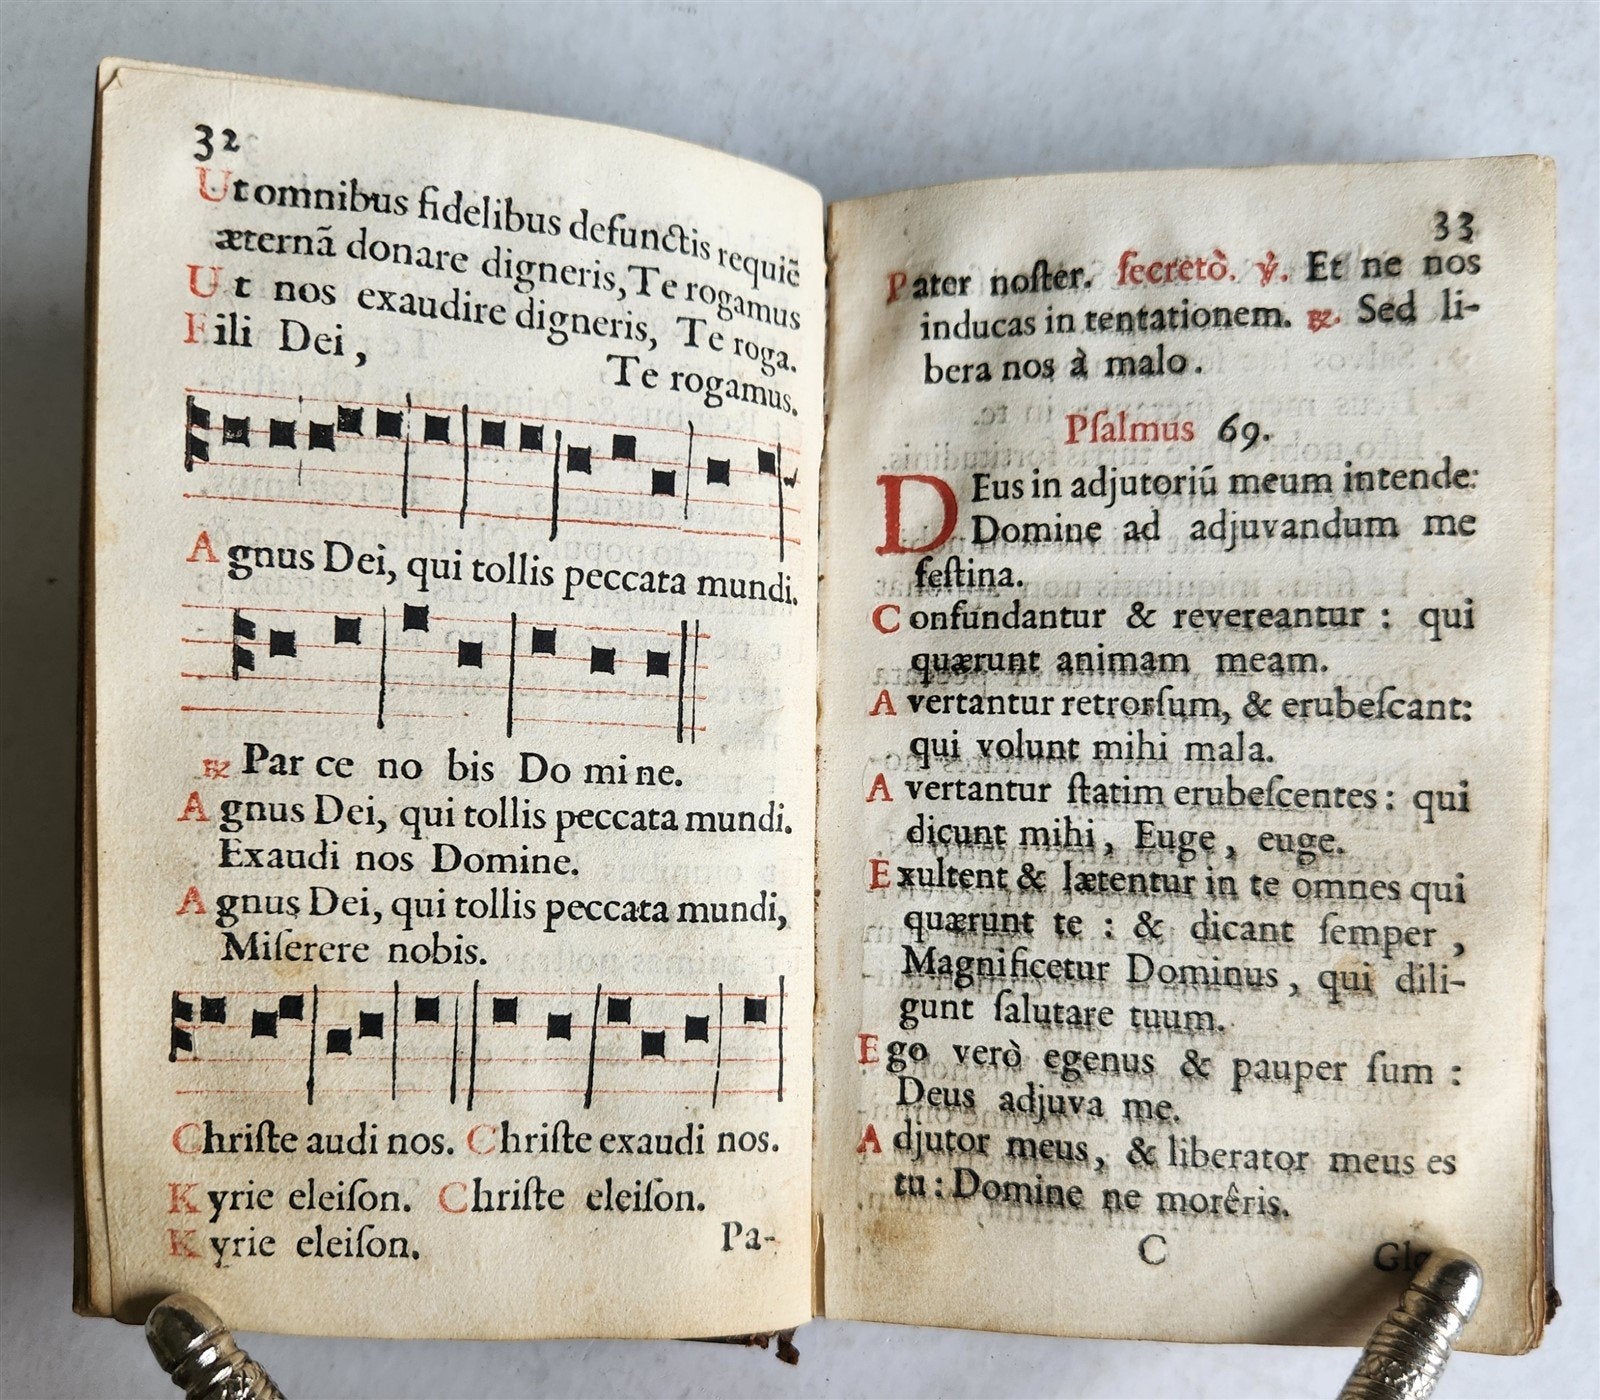 32
Ut omnibus fidelibus defunctis requiẽ
æternã donare digneris, Te rogamus
Ut nos exaudire digneris, Te roga.
Fili Dei, Te rogamus.
Agnus Dei, qui tollis peccata mundi.
℟ Par ce no bis Do mi ne.
Agnus Dei, qui tollis peccata mundi.
Exaudi nos Domine.
Agnus Dei, qui tollis peccata mundi,
Miſerere nobis.
Chriſte audi nos. Chriſte exaudi nos.
Kyrie eleiſon. Chriſte eleiſon.
Kyrie eleiſon.
Pa-
33
Pater noſter. ſecretò. ℣. Et ne nos
inducas in tentationem. ℟. Sed li-
bera nos à malo.
Pſalmus 69.
DEus in adjutoriũ meum intende:
Domine ad adjuvandum me
feſtina.
Confundantur & revereantur : qui
quærunt animam meam.
Avertantur retrorſum, & erubeſcant:
qui volunt mihi mala.
Avertantur ſtatim erubeſcentes : qui
dicunt mihi, Euge, euge.
Exultent & lætentur in te omnes qui
quærunt te : & dicant ſemper,
Magnificetur Dominus, qui dili-
gunt ſalutare tuum.
Ego verò egenus & pauper ſum :
Deus adjuva me.
Adjutor meus, & liberator meus es
tu : Domine ne morêris.
C